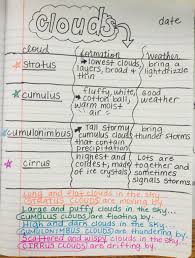 Clouds
date
cloud formation weather
stratus → lowest clouds, bring a
layers, broad + light drizzle
thin
cumulus → fluffy, white, good
cotton ball, weather
warm moist
air =
cumulonimbus → Tall stormy bring
cumulus clouds thunder storms
that contain
precipitation
cirrus → highest and colds are
coldest, made together and
of ice crystals sometimes
signals storms
Long and flat clouds in the sky...
STRATUS CLOUDS are moving by.
Large and puffy clouds in the sky...
CUMULUS CLOUDS are floating by.
High and dark clouds in the sky...
CUMULONIMBUS CLOUDS are thundering by.
Scattered and wispy clouds in the sky...
CIRRUS CLOUDS are drifting by.